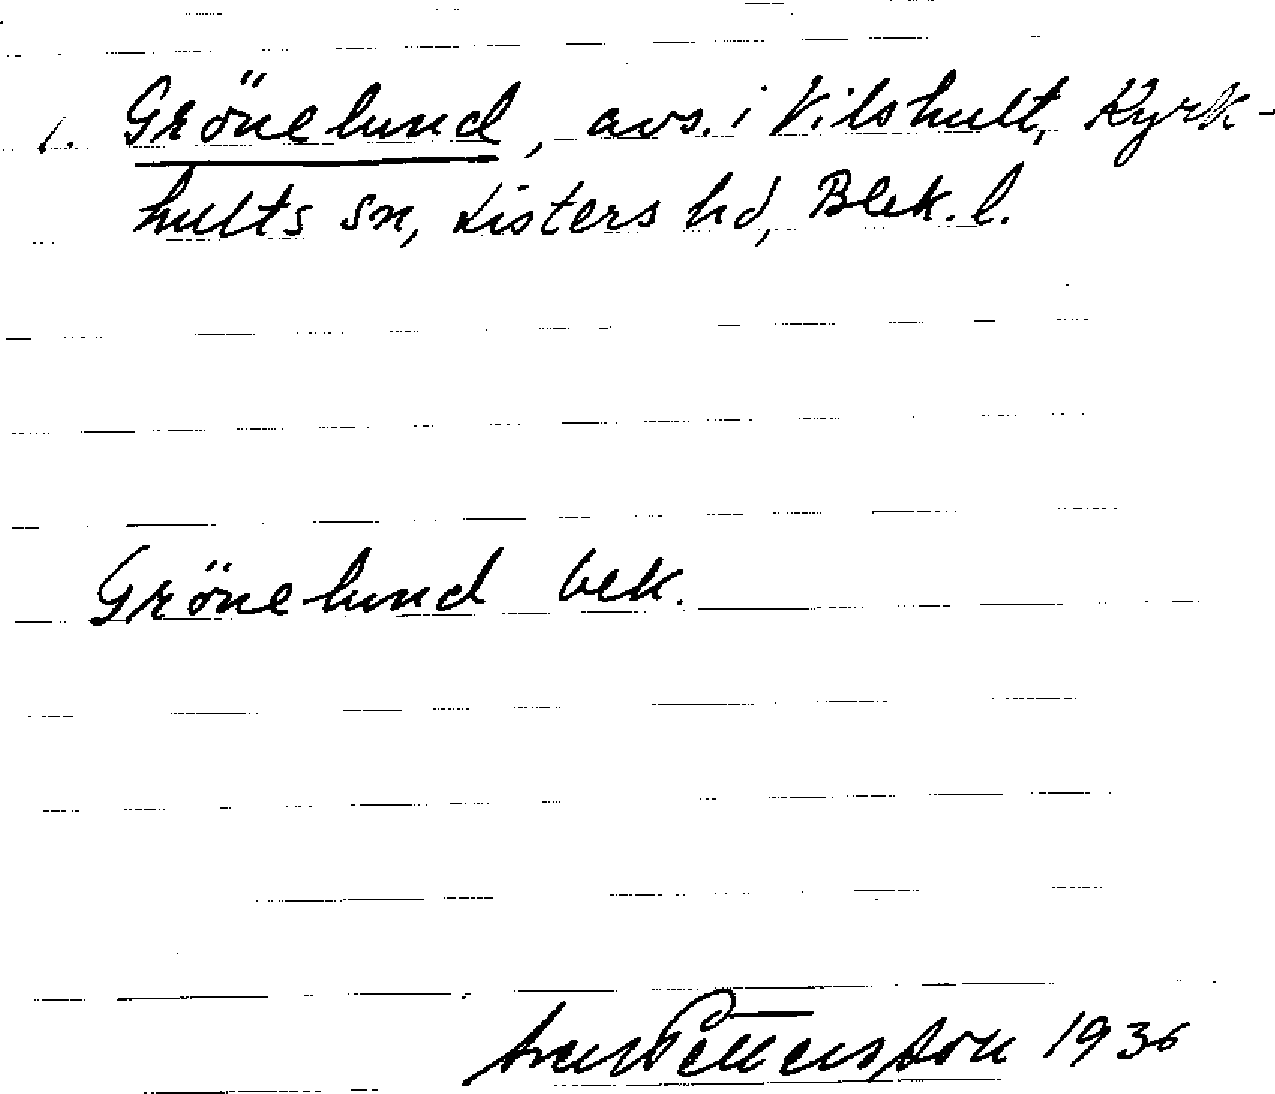 1. Grönelund, avs. i Vilshult, Kyrk-
hults sn, Listers hd, Blek. l.
Grönelund bek.
Pettersson 1936